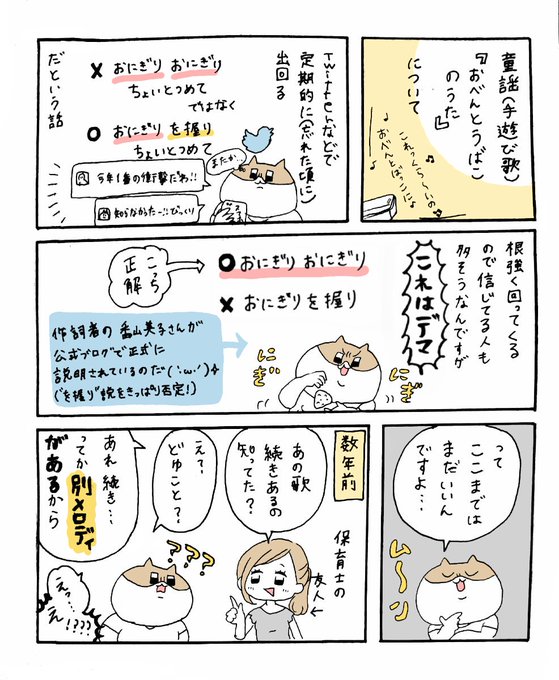 童謡(手遊び歌)
『おべんとうばこ
のうた』
について
これっくらーいの
おべんとばっこによ
Twitterなどで
定期的に(忘れた頃に)
出回る
× おにぎり おにぎり
ちょいとつめて
ではなく
○ おにぎりを握り
ちょいとつめて
またか…
今年1番の衝撃だわ!!
知らなかったー!!びっくり
だという話
根強く回ってくる
ので信じてる人も
多そうなんですが
これはデマ
こっち
正解
○ おにぎり おにぎり
× おにぎりを握り
作詞者の香山美子さんが
公式ブログで正式に
説明されているのだ(`;ω;´)
("を握り"説をきっぱり否定!)
にぎ
にぎ
って
ここまでは
まだいいん
ですよ…
ム〜ン
数年前
あの歌
続きあるの
知ってた?
保育士の
友人
えっ、
どゆこと?
???
あれ続き…
ってか別メロディ
があるから
えっ…
え!???